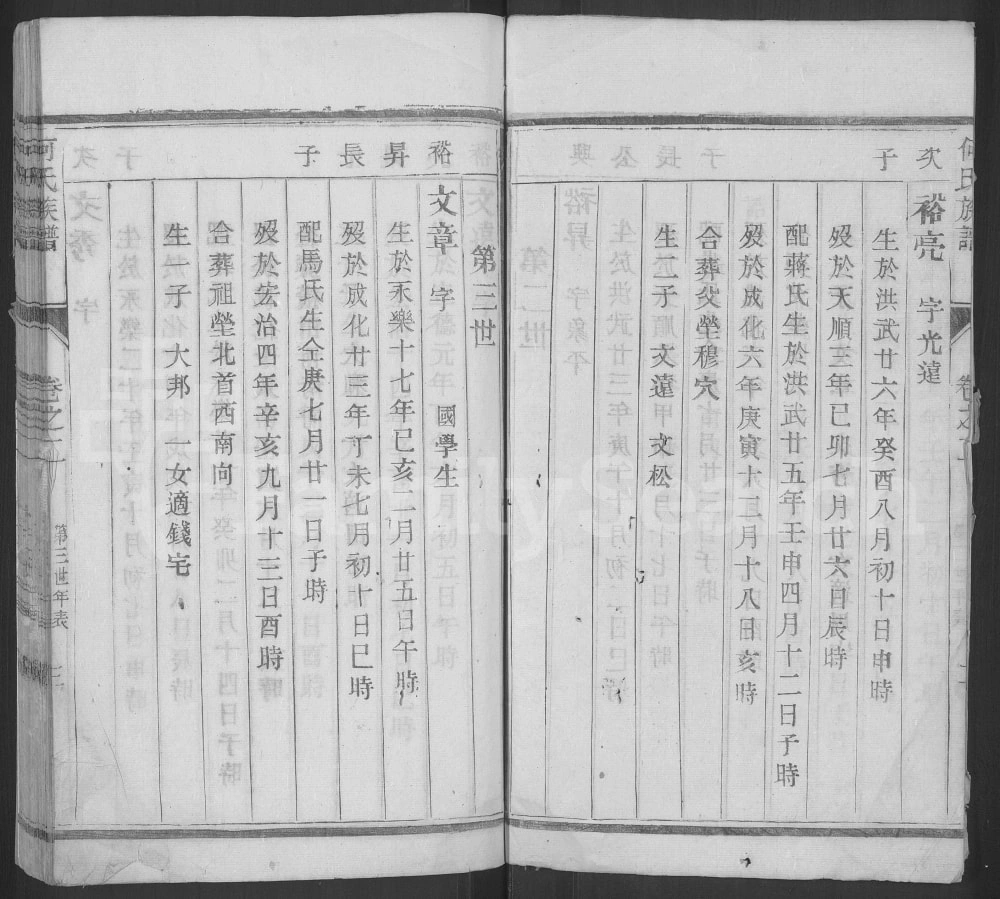 次子
裕亮 字光遠
生於洪武廿六年癸酉八月初十日申時
歿於天順三年己卯七月廿六日辰時
配蔣氏生於洪武廿五年壬申四月十二日子時
歿於成化六年庚寅十二月十八日亥時
合葬父塋穆穴
生二子 文遠 文松
第三世
裕昇長子
文章 字 國學生
生於永樂十七年己亥二月廿五日午時
歿於成化廿三年丁未七月初十日巳時
配馬氏生仝庚七月廿一日子時
歿於宏治四年辛亥九月十三日酉時
合葬祖塋北首西南向
生一子大邦 一女適錢宅
何氏族譜
卷之
第三世年表